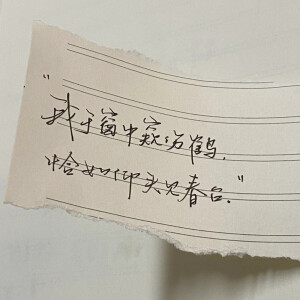 “我于窗中窥伤鹤,
恰如仰头见春台.”